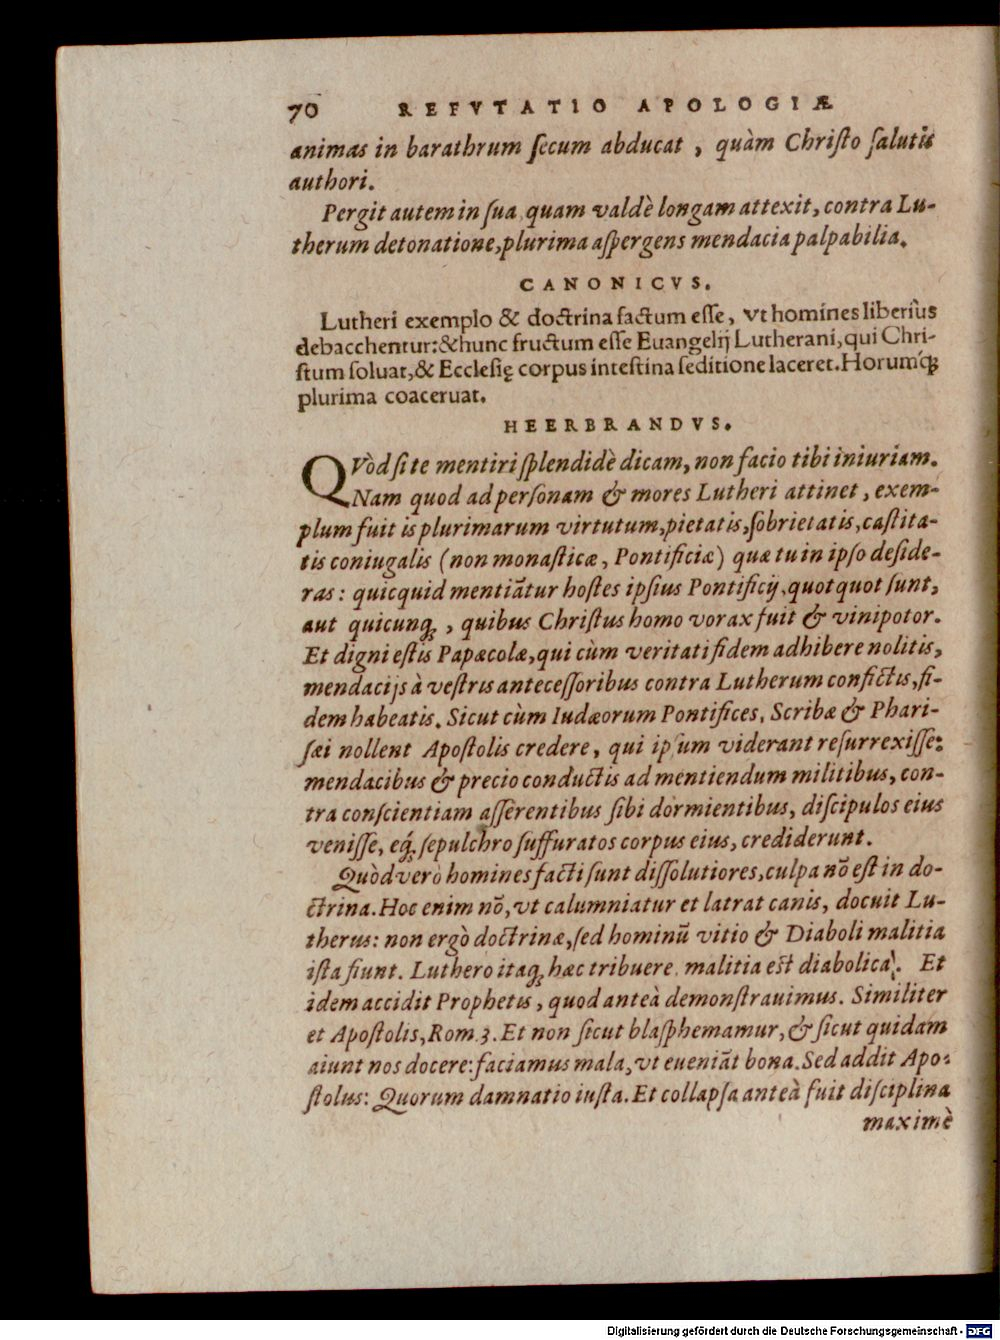 70 REFVTATIO APOLOGIÆ
animas in barathrum ſecum abducat, quàm Chriſto ſalutis
authori.
Pergit autem in ſua, quam valdè longam attexit, contra Lu-
therum detonatione, plurima aſpergens mendacia palpabilia.
CANONICVS.
Lutheri exemplo & doctrina factum eſſe, vt homines liberiùs
debacchentur: & hunc fructum eſſe Euangelij Lutherani, qui Chri-
ſtum ſoluat, & Eccleſię corpus inteſtina ſeditione laceret. Horumq́;
plurima coaceruat.
HEERBRANDVS.
QVòd ſi te mentiri ſplendidè dicam, non facio tibi iniuriam.
Nam quod ad perſonam & mores Lutheri attinet, exem-
plum fuit is plurimarum virtutum, pietatis, ſobrietatis, caſtita-
tis coniugalis (non monaſticæ, Pontificiæ) quæ tu in ipſo deſide-
ras: quicquid mentiãtur hoſtes ipſius Pontificij, quotquot ſunt,
aut quicunq;, quibus Chriſtus homo vorax fuit & vinipotor.
Et digni eſtis Papæcolæ, qui cùm veritati fidem adhibere nolitis,
mendacijs à veſtris anteceſſoribus contra Lutherum confictis, fi-
dem habeatis. Sicut cùm Iudæorum Pontifices, Scribæ & Phari-
ſæi nollent Apoſtolis credere, qui ipſum viderant reſurrexiſſe:
mendacibus & precio conductis ad mentiendum militibus, con-
tra conſcientiam aſſerentibus ſibi dormientibus, diſcipulos eius
veniſſe, eq́; ſepulchro ſuffuratos corpus eius, crediderunt.
Quòd verò homines facti ſunt diſſolutiores, culpa nõ eſt in do-
ctrina. Hoc enim nõ, vt calumniatur et latrat canis, docuit Lu-
therus: non ergò doctrinæ, ſed hominũ vitio & Diaboli malitia
iſta fiunt. Luthero itaq; hæc tribuere, malitia eſt diabolica. Et
idem accidit Prophetis, quod anteà demonſtrauimus. Similiter
et Apoſtolis, Rom. 3. Et non ſicut blaſphemamur, & ſicut quidam
aiunt nos docere: faciamus mala, vt eueniãt bona. Sed addit Apo-
ſtolus: Quorum damnatio iuſta. Et collapſa anteà fuit diſciplina
maximè
Digitalisierung gefördert durch die Deutsche Forschungsgemeinschaft - DFG